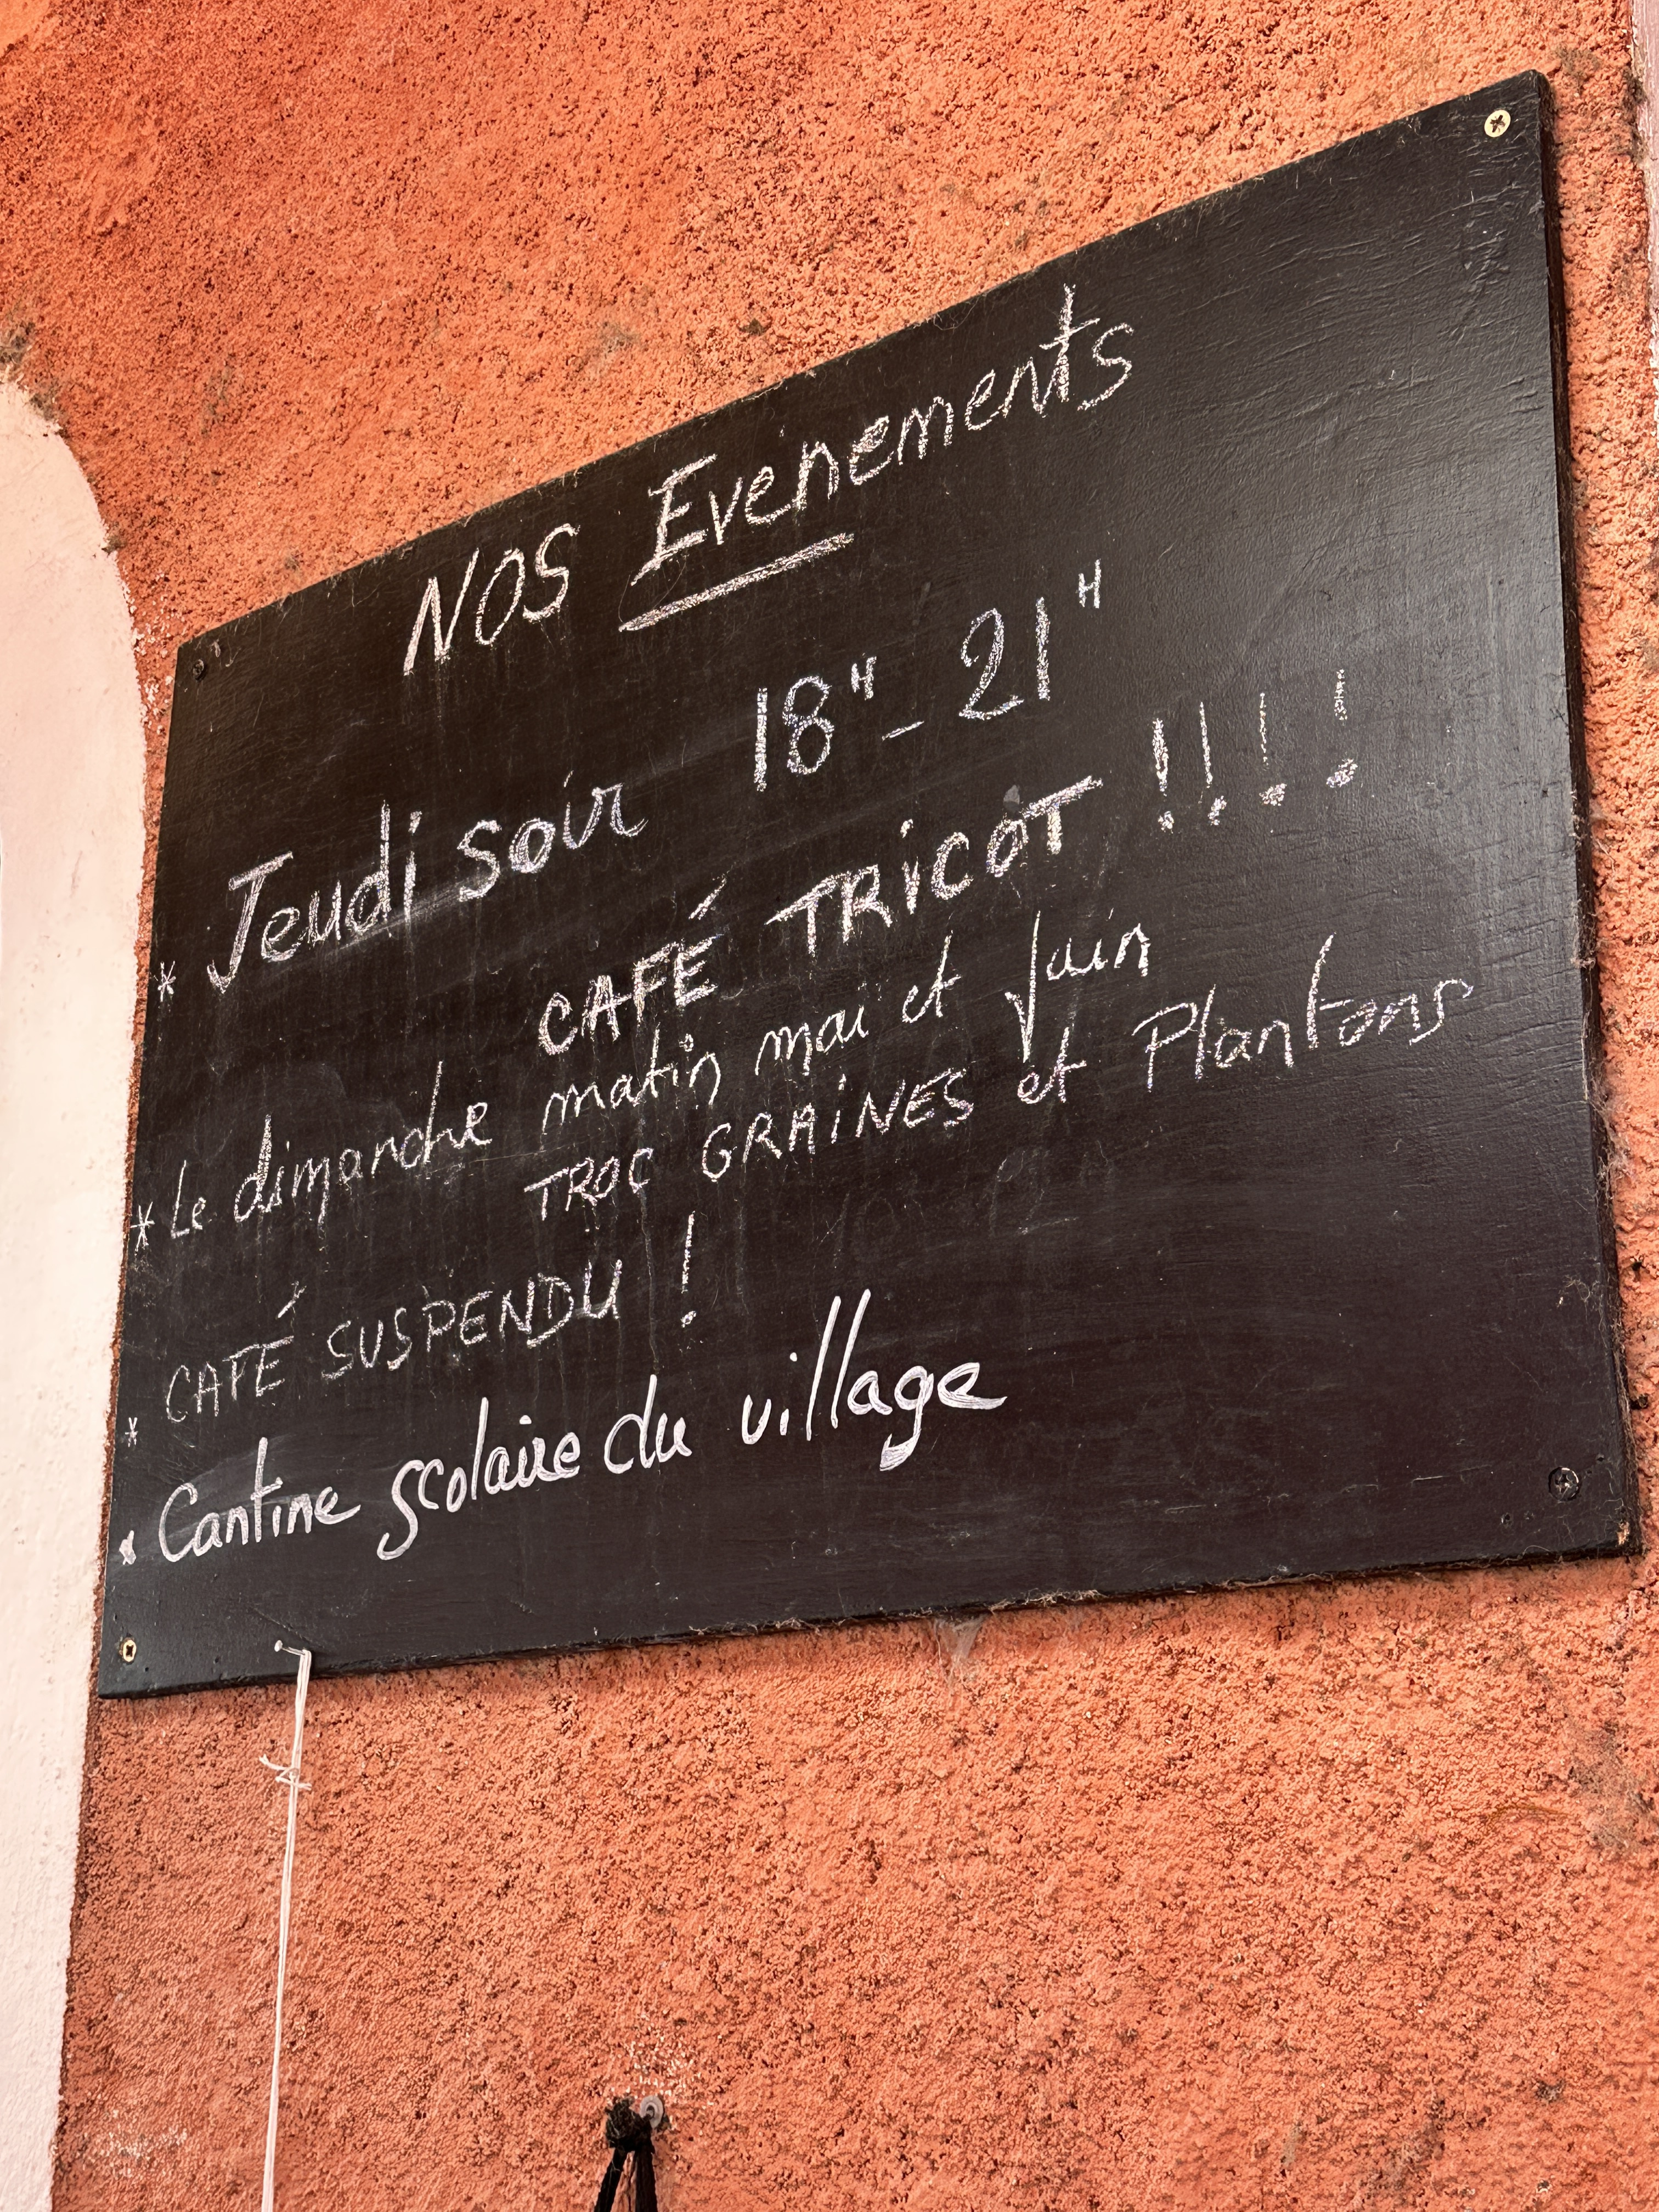 NOS Evenements
* Jeudi soir 18H - 21H
CAFÉ TRICOT !!!!
* Le dimanche matin mai et Juin
TROC GRAINES et Plantons
* CAFÉ SUSPENDU !
* Cantine scolaire du village